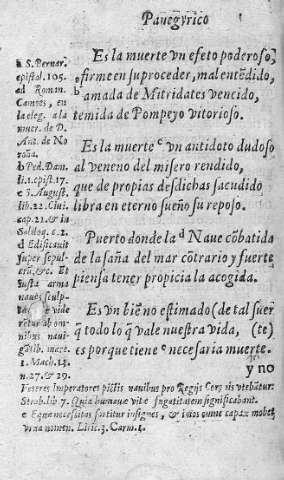 Panegyrico
Es la muerte vn efeto poderoso,
firme en su proceder, mal entēdido,
b amada de Mitridates vencido,
temida de Pompeyo vitorioso.
Es la muerte c vn antidoto dudoso
al veneno del misero rendido,
que de propias desdichas sacudido
libra en eterno sueño su reposo.
Puerto donde la d Naue cōbatida
de la saña del mar cōtrario y fuerte
piensa tener propicia la acogida.
Es vn biē no estimado (de tal suer
q̄ todo lo q̄ vale nuestra vida, (te)
es porque tiene e necesaria muerte.
y no
a S. Bernar.
epistol. 105.
ad Roman.
Camoes, en
la eleg. a la
muer. de D.
Ant. de No
roña.
b Ped. Dam.
li. 1. epist. 17.
c S. August.
lib. 22. Ciui.
cap. 21. & in
Soliloq. c. 2.
d Edificauit
super sepul-
cra, &c. Et
iuxta arma
naues sculp-
tas
1. Mach. 13.
n. 27. & 29.
Veteres Imperatores pictis nauibus pro Regijs
Strab. lib 7. Quia humanæ vitæ fugatitatem significabant.
e Equa necessitas sortitur insignes, & imos omne capax mouet
vrna nomen. Liric. 3. Carm. 1.